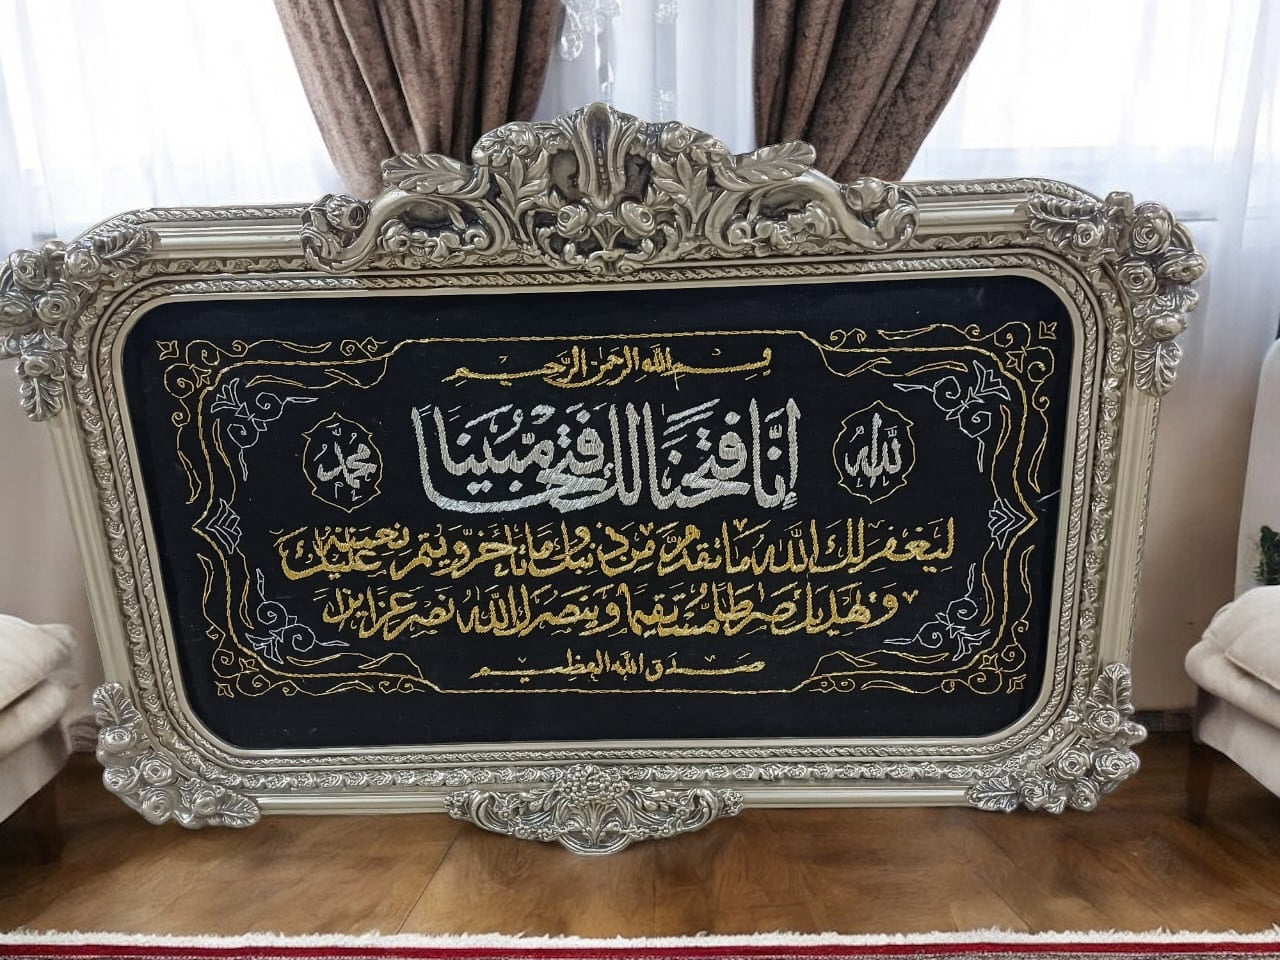 بسم الله الرحمن الرحيم
الله
إنا فتحنا لك فتحا مبينا
محمد
ليغفر لك الله ما تقدم من ذنبك وما تأخر ويتم نعمته عليك
ويهديك صراطا مستقيما وينصرك الله نصرا عزيزا
صدق الله العظيم